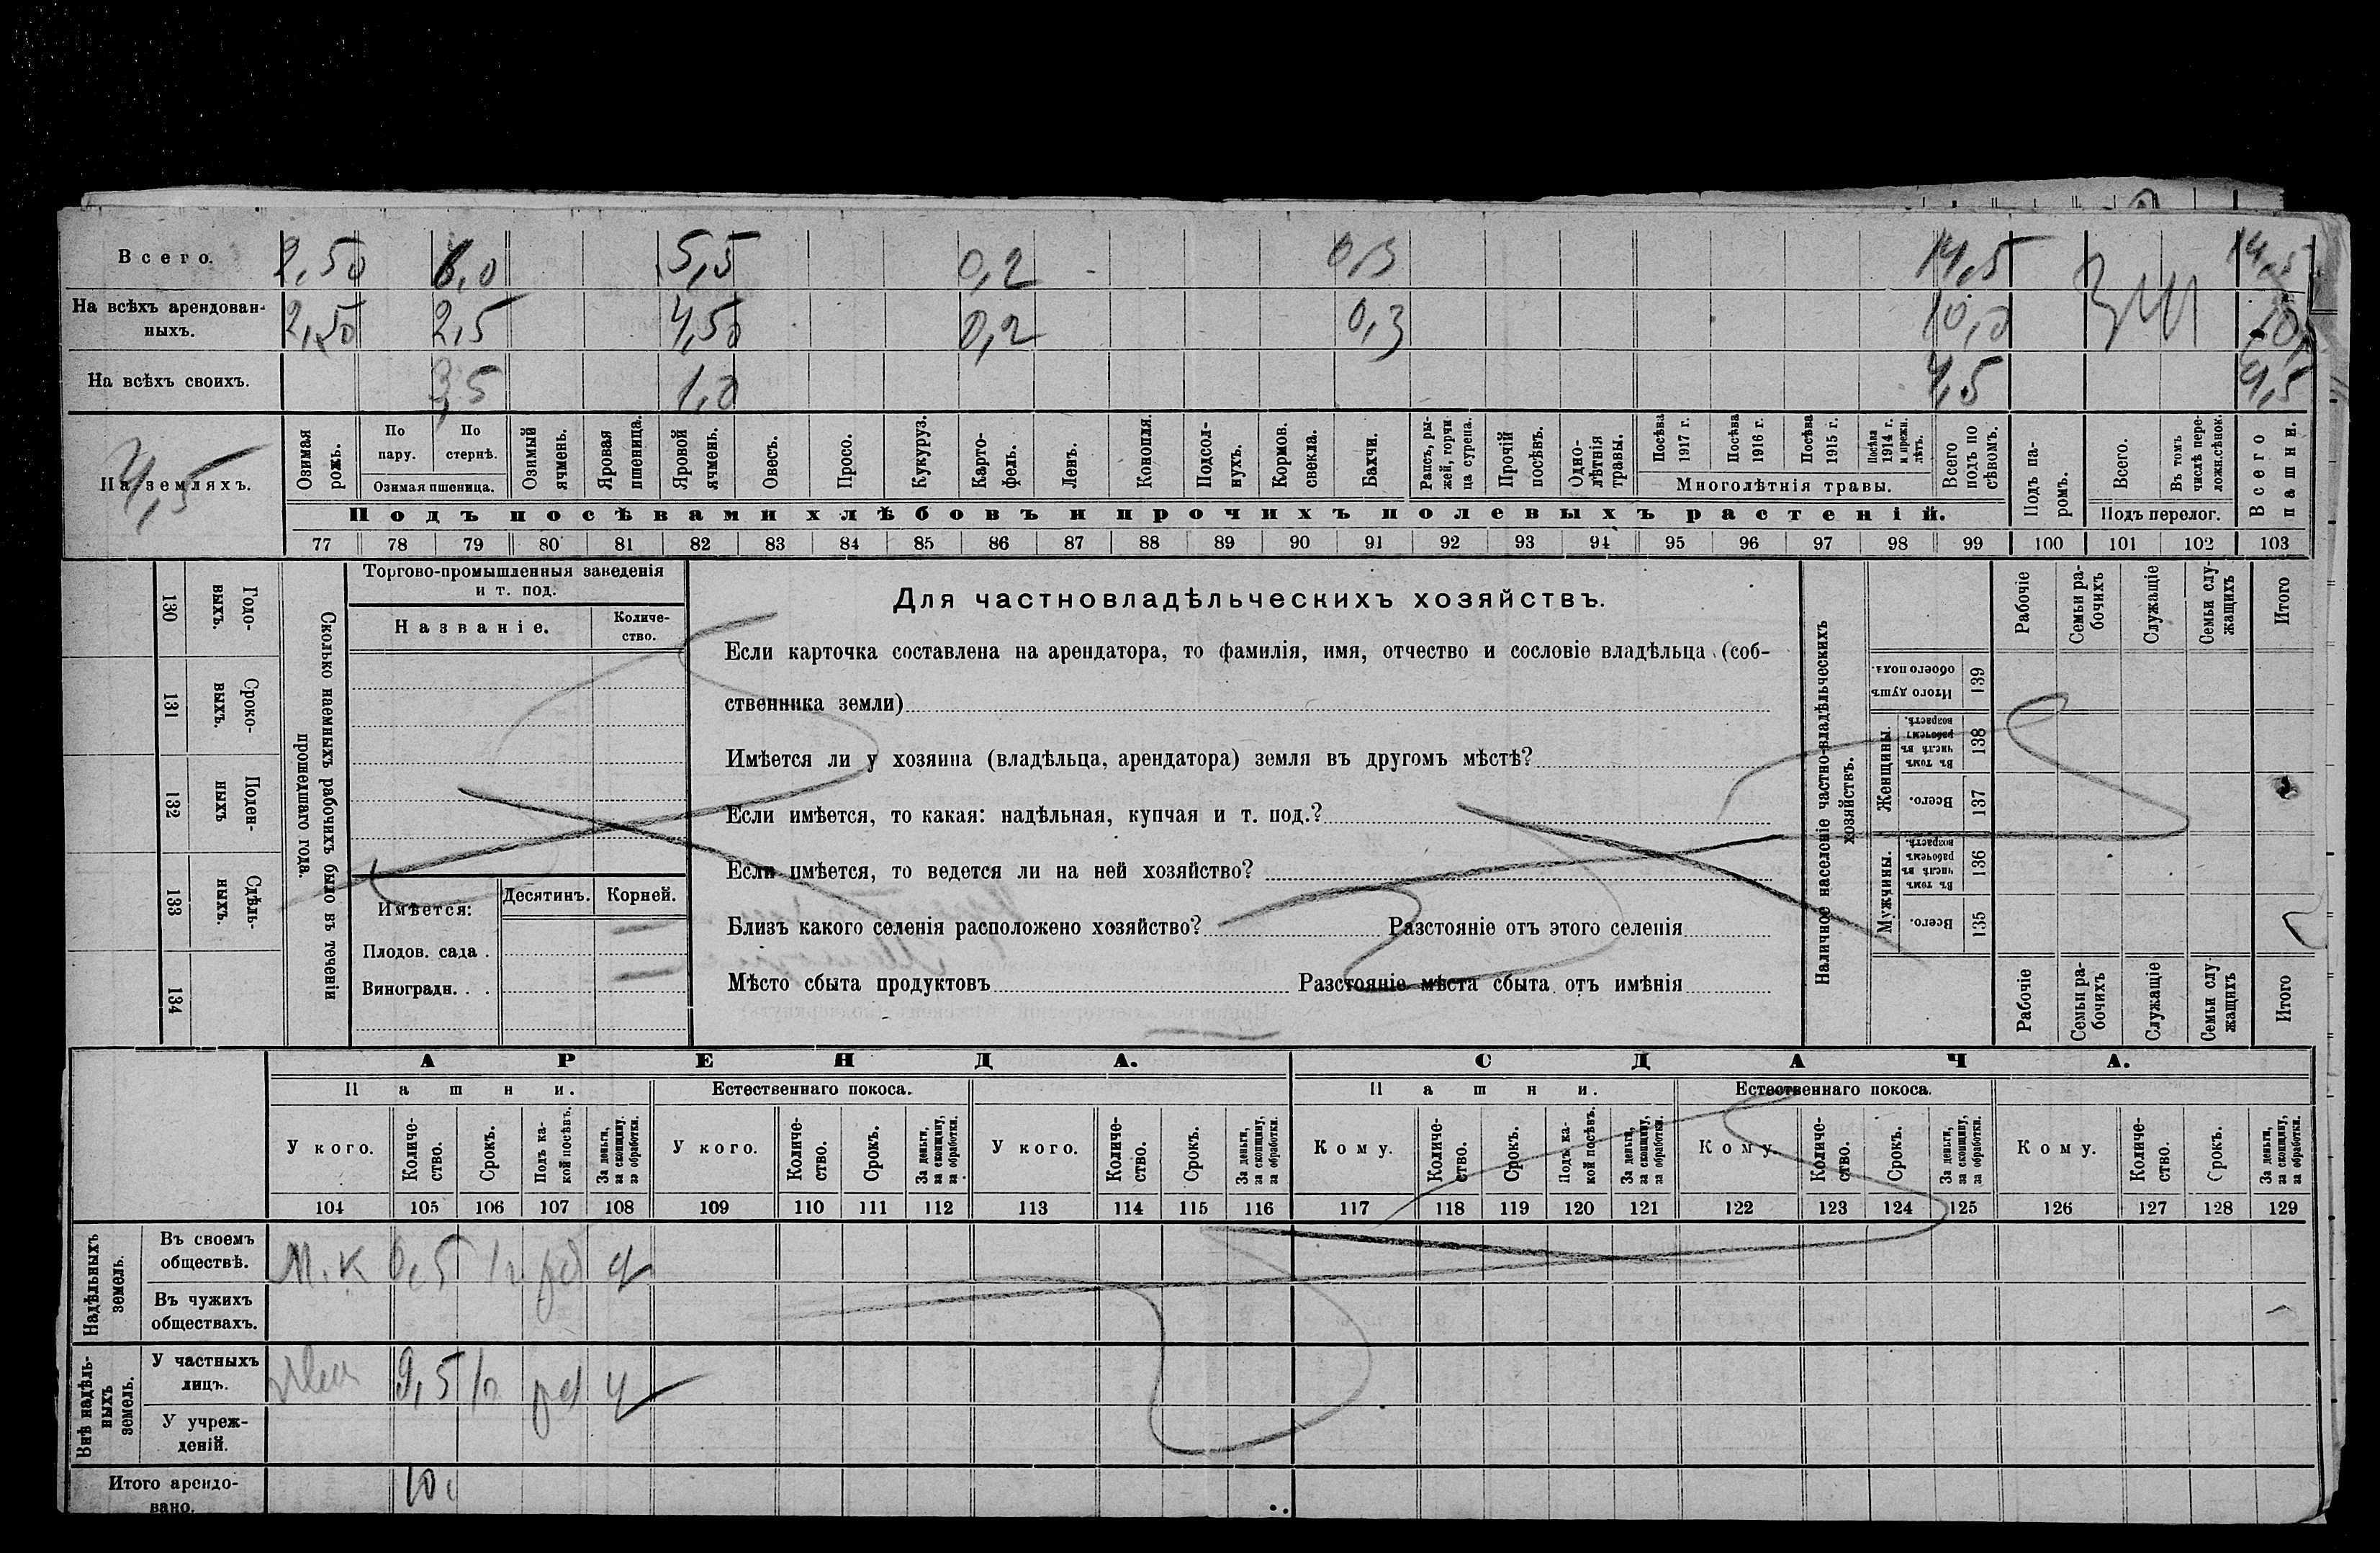 Всего. 2,50 6,0 5,5 0,2 0,3 14,5 14,5
На всѣхъ арендован-
ныхъ. 2,50 2,5 4,50 0,2 0,3 10,0 10,
На всѣхъ своихъ. 3,5 1,0 4,5 4,5
На земляхъ. 4,5
Озимая рожь.
По пару.
По стернѣ.
Озимая пшеница.
Озимый ячмень.
Яровая пшеница.
Яровой ячмень.
Овесъ.
Просо.
Кукуруз.
Карто-
фель.
Ленъ.
Конопля.
Подсол-
нухъ.
Кормов. свекла.
Бахчи.
Рапсъ, ры-
жей, горчи
ца сурепа.
Прочій посѣвъ.
Одно-
лѣтнія травы.
Посѣва 1917 г.
Посѣва 1916 г.
Посѣва 1915 г.
Посѣва 1914 г. и прежн. лѣтъ.
Многолѣтнія травы.
Всего подъ по
сѣвомъ.
Подъ па-
ромъ.
Всего.
Въ томъ числѣ пере-
ложн.сѣнок.
Подъ перелог.
Всего пашни.
Подъ посѣвами хлѣбовъ и прочихъ полевыхъ растеній.
77 78 79 80 81 82 83 84 85 86 87 88 89 90 91 92 93 94 95 96 97 98 99 100 101 102 103
130 Годо-
выхъ.
131 Сроко-
выхъ.
132 Поден-
ныхъ
133 Сдѣль-
ныхъ.
134
Сколько наемныхъ рабочихъ было въ теченіи
прошедшаго года.
Торгово-промышленныя заведенія
и т. под.
Названіе.
Количе-
ство.
Имѣется:
Десятинъ. Корней.
Плодов. сада .
Виноградн. . .
Для частновладѣльческихъ хозяйствъ.
Если карточка составлена на арендатора, то фамилія, имя, отчество и сословіе владѣльца (соб-
ственника земли)
Имѣется ли у хозяина (владѣльца, арендатора) земля въ другомъ мѣстѣ?
Если имѣется, то какая: надѣльная, купчая и т. под.?
Если имѣется, то ведется ли на ней хозяйство?
Близъ какого селенія расположено хозяйство? Разстояніе отъ этого селенія
Мѣсто сбыта продуктовъ Разстояніе мѣста сбыта отъ имѣнія
Наличное населеніе частно-владѣльческихъ
хозяйствъ.
Рабочіе
Семьи ра-
бочихъ
Служащіе
Семьи слу-
жащихъ
Итого
Итого душъ обоего пола. 139
Женщины.
Въ томъ числѣ въ рабочемъ возрастѣ. 138
Всего. 137
Мужчины.
Въ томъ числѣ въ рабочемъ возрастѣ. 136
Всего. 135
Рабочіе
Семьи ра-
бочихъ
Служащіе
Семьи слу
жащихъ
Итого
АРЕНДА. СДАЧА.
Пашни. Естественнаго покоса. Пашни. Естественнаго покоса.
У кого. Количе-
ство. Срокъ. Подъ ка-
кой посѣвъ. За деньги,
за скопщину,
за обработки.
У кого. Количе-
ство. Срокъ. За деньги,
за скопщину,
за обработки.
У кого. Количе-
ство. Срокъ. За деньги,
за скопщину,
за обработки.
Кому. Количе-
ство. Срокъ. Подъ ка-
кой посѣвъ. За деньги,
за скопщину,
за обработки.
Кому. Количе-
ство. Срокъ. За деньги,
за скопщину,
за обработки.
Кому. Количе-
ство. Срокъ. За деньги,
за скопщину,
за обработки.
104 105 106 107 108 109 110 111 112 113 114 115 116 117 118 119 120 121 122 123 124 125 126 127 128 129
Надѣльныхъ
земель.
Въ своемъ
обществѣ. М.к 0,5
Въ чужихъ
обществахъ.
Внѣ надѣль-
ныхъ
земель.
У частныхъ
лицъ. 9,5
У учреж-
деній.
Итого арендо-
вано. 10,